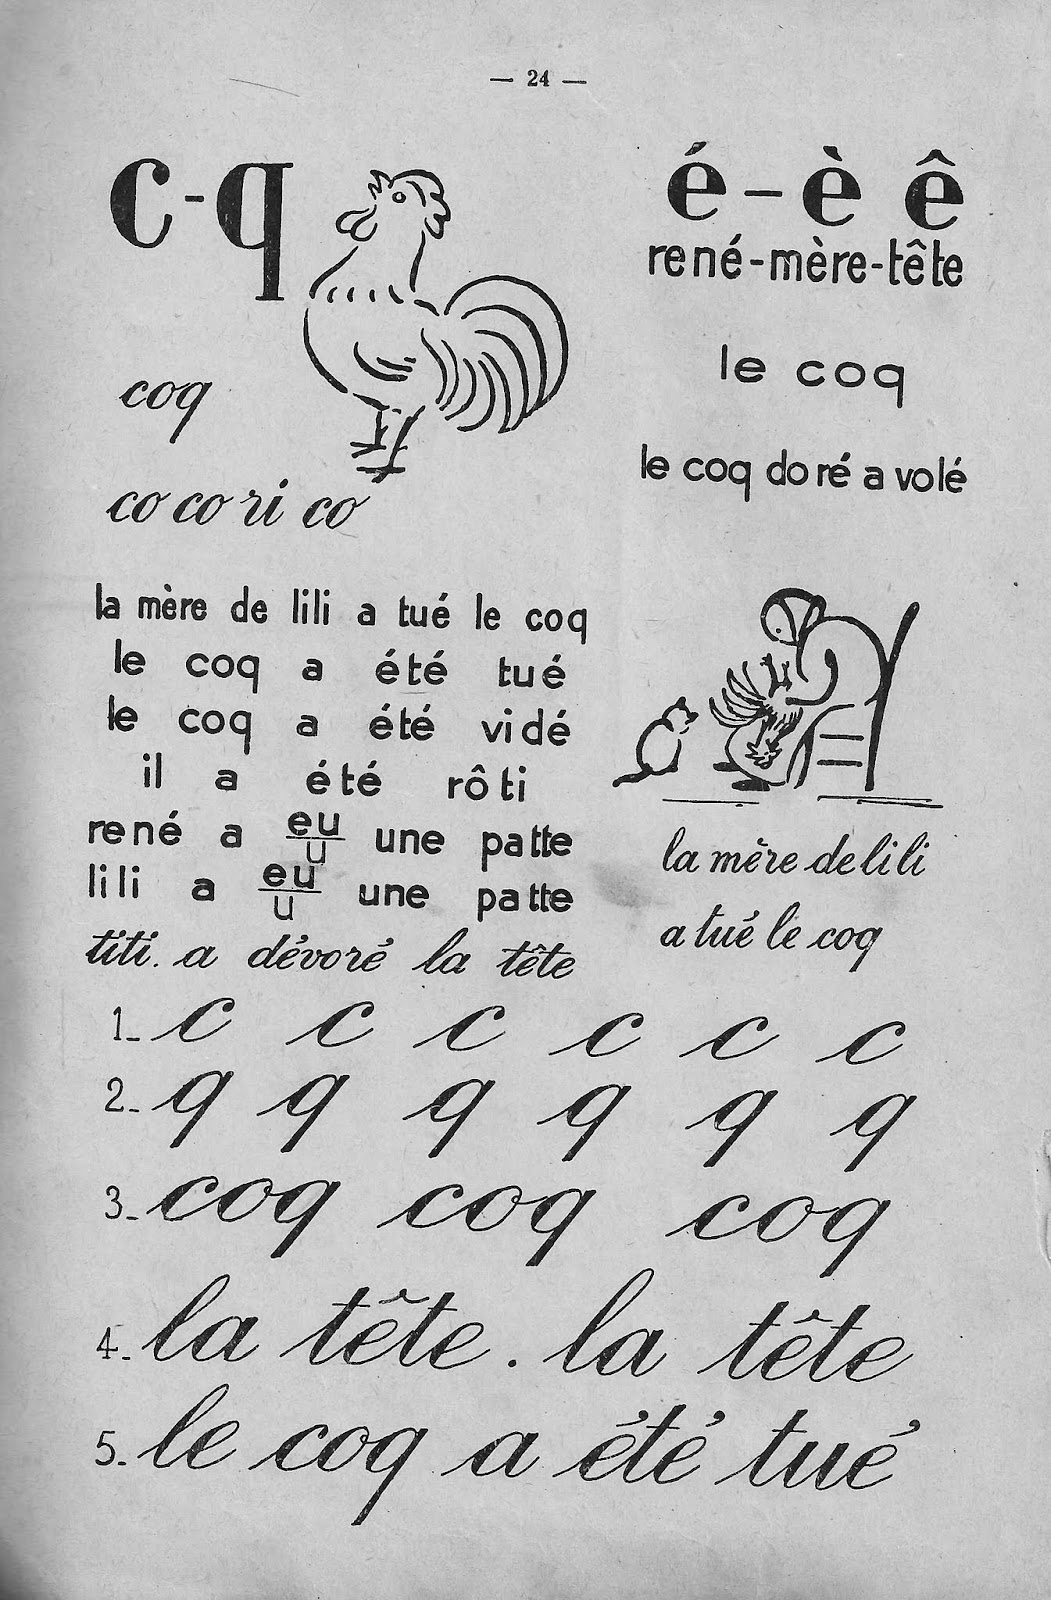 — 24 —
c-q
é-è ê
rené-mère-tête
le coq
coq
le coq do ré a volé
co co ri co
la mère de lili a tué le coq
le coq a été tué
le coq a été vi dé
il a été rô ti
rené a eu une patte
u
lili a eu une patte
u
titi. a dévoré la tête
la mère de li li
a tué le coq
1_ c c c c c c
2_ q q q q q q
3_ coq coq coq
4_ la tête . la tête
5_ le coq a été tué